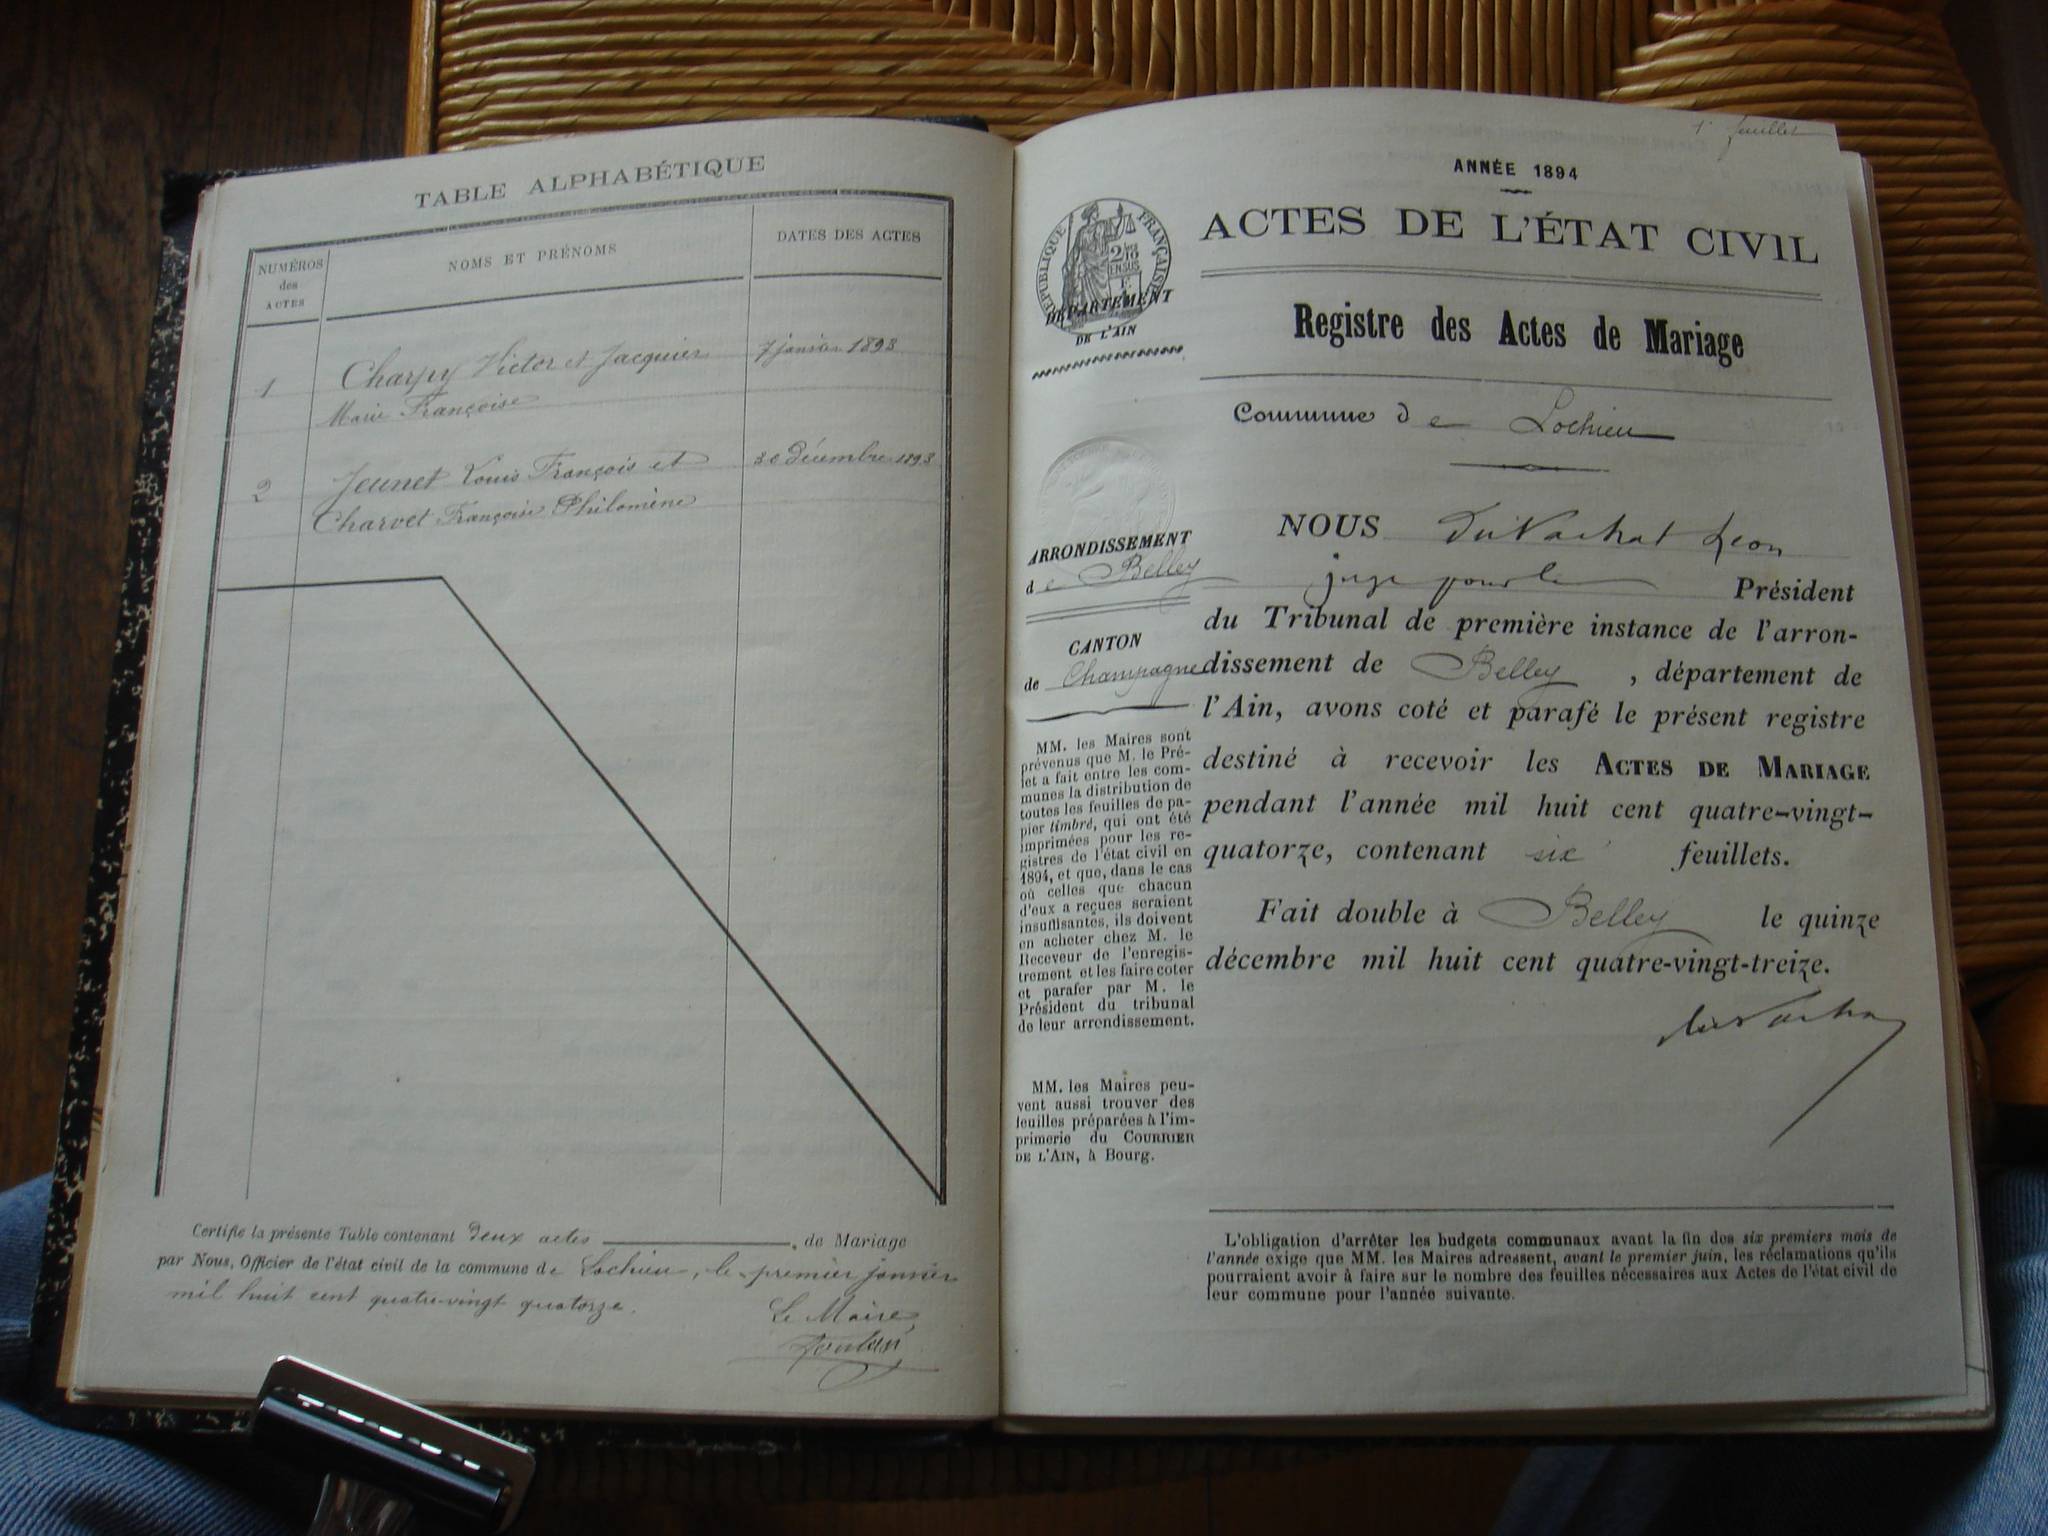 TABLE ALPHABÉTIQUE
NUMÉROS
des
ACTES
NOMS ET PRÉNOMS
DATES DES ACTES
1
Charpy Victor et Jacquier
Marie Françoise
7 janvier 1893
2
Jeunet Louis François et
Charvet Françoise Philomène
30 décembre 1893
Certifie la présente Table contenant deux actes de Mariage
par Nous, Officier de l'état civil de la commune de Lochieu, le premier janvier
mil huit cent quatre-vingt quatorze.
Le Maire
1er feuillet
ANNÉE 1894
RÉPUBLIQUE FRANÇAISE
2 10
EN SUS
DÉPARTEMENT
DE L'AIN
ACTES DE L'ÉTAT CIVIL
Registre des Actes de Mariage
Commune de Lochieu
ARRONDISSEMENT
de Belley
CANTON
de Champagne
MM. les Maires sont
prévenus que M. le Pré-
fet a fait entre les com-
munes la distribution de
toutes les feuilles de pa-
pier timbré, qui ont été
imprimées pour les re-
gistres de l'état civil en
1894, et que, dans le cas
où celles que chacun
d'eux a reçues seraient
insuffisantes, ils doivent
en acheter chez M. le
Receveur de l'enregis-
trement et les faire coter
et parafer par M. le
Président du tribunal
de leur arrondissement.
MM. les Maires peu-
vent aussi trouver des
feuilles préparées à l'im-
primerie du COURRIER
DE L'AIN, à Bourg.
NOUS Du Vachat Léon
juge pour le Président
du Tribunal de première instance de l'arron-
dissement de Belley, département de
l'Ain, avons coté et parafé le présent registre
destiné à recevoir les ACTES DE MARIAGE
pendant l'année mil huit cent quatre-vingt-
quatorze, contenant six feuillets.
Fait double à Belley le quinze
décembre mil huit cent quatre-vingt-treize.
du Vachat
L'obligation d'arrêter les budgets communaux avant la fin des six premiers mois de
l'année exige que MM. les Maires adressent, avant le premier juin, les réclamations qu'ils
pourraient avoir à faire sur le nombre des feuilles nécessaires aux Actes de l'état civil de
leur commune pour l'année suivante.